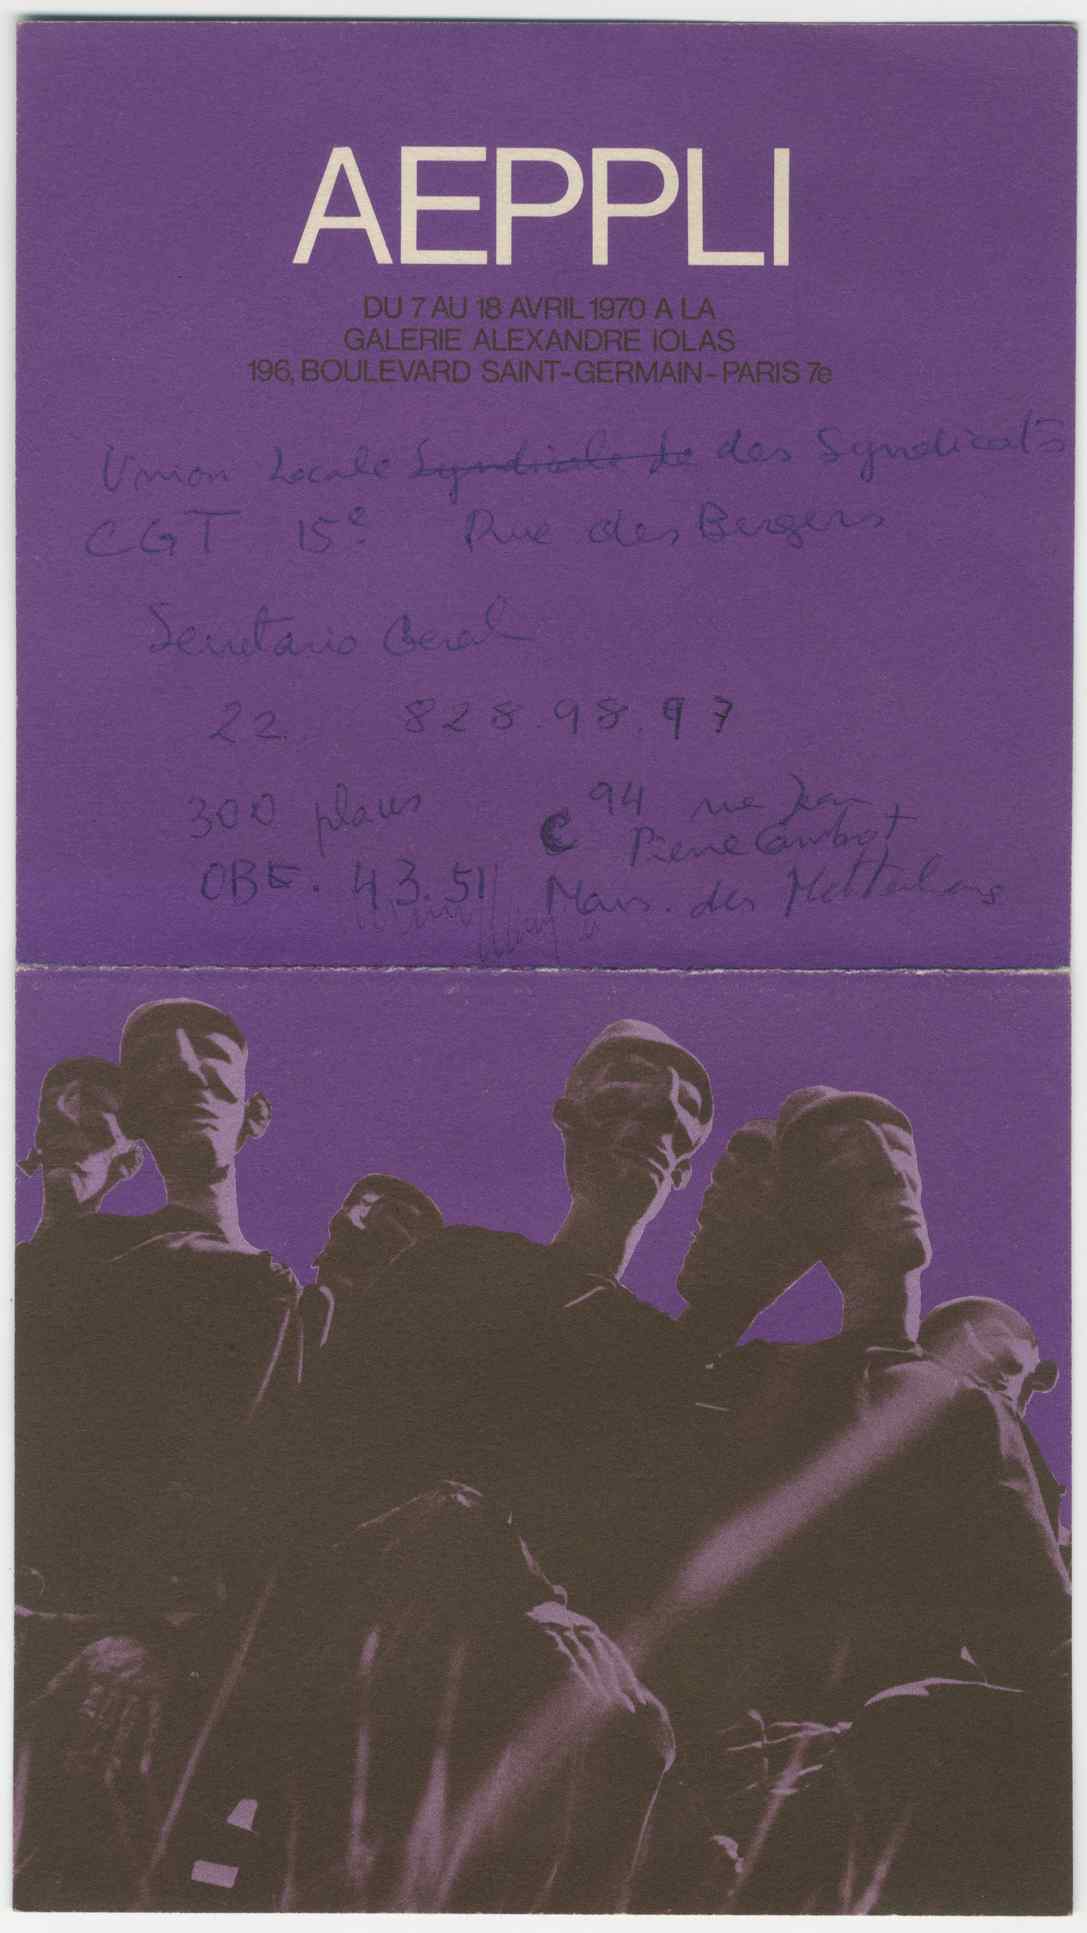 AEPPLI
DU 7 AU 18 AVRIL 1970 A LA
GALERIE ALEXANDRE IOLAS
196, BOULEVARD SAINT-GERMAIN - PARIS 7e
Union Locale Syndicale de des Syndicats
CGT 15e Rue des Bergers
Secretario Geral
22 828.98.97
300 places
94 rue Jean
Pierre Timbaud
OBE. 43.51
Mais. des Metallos